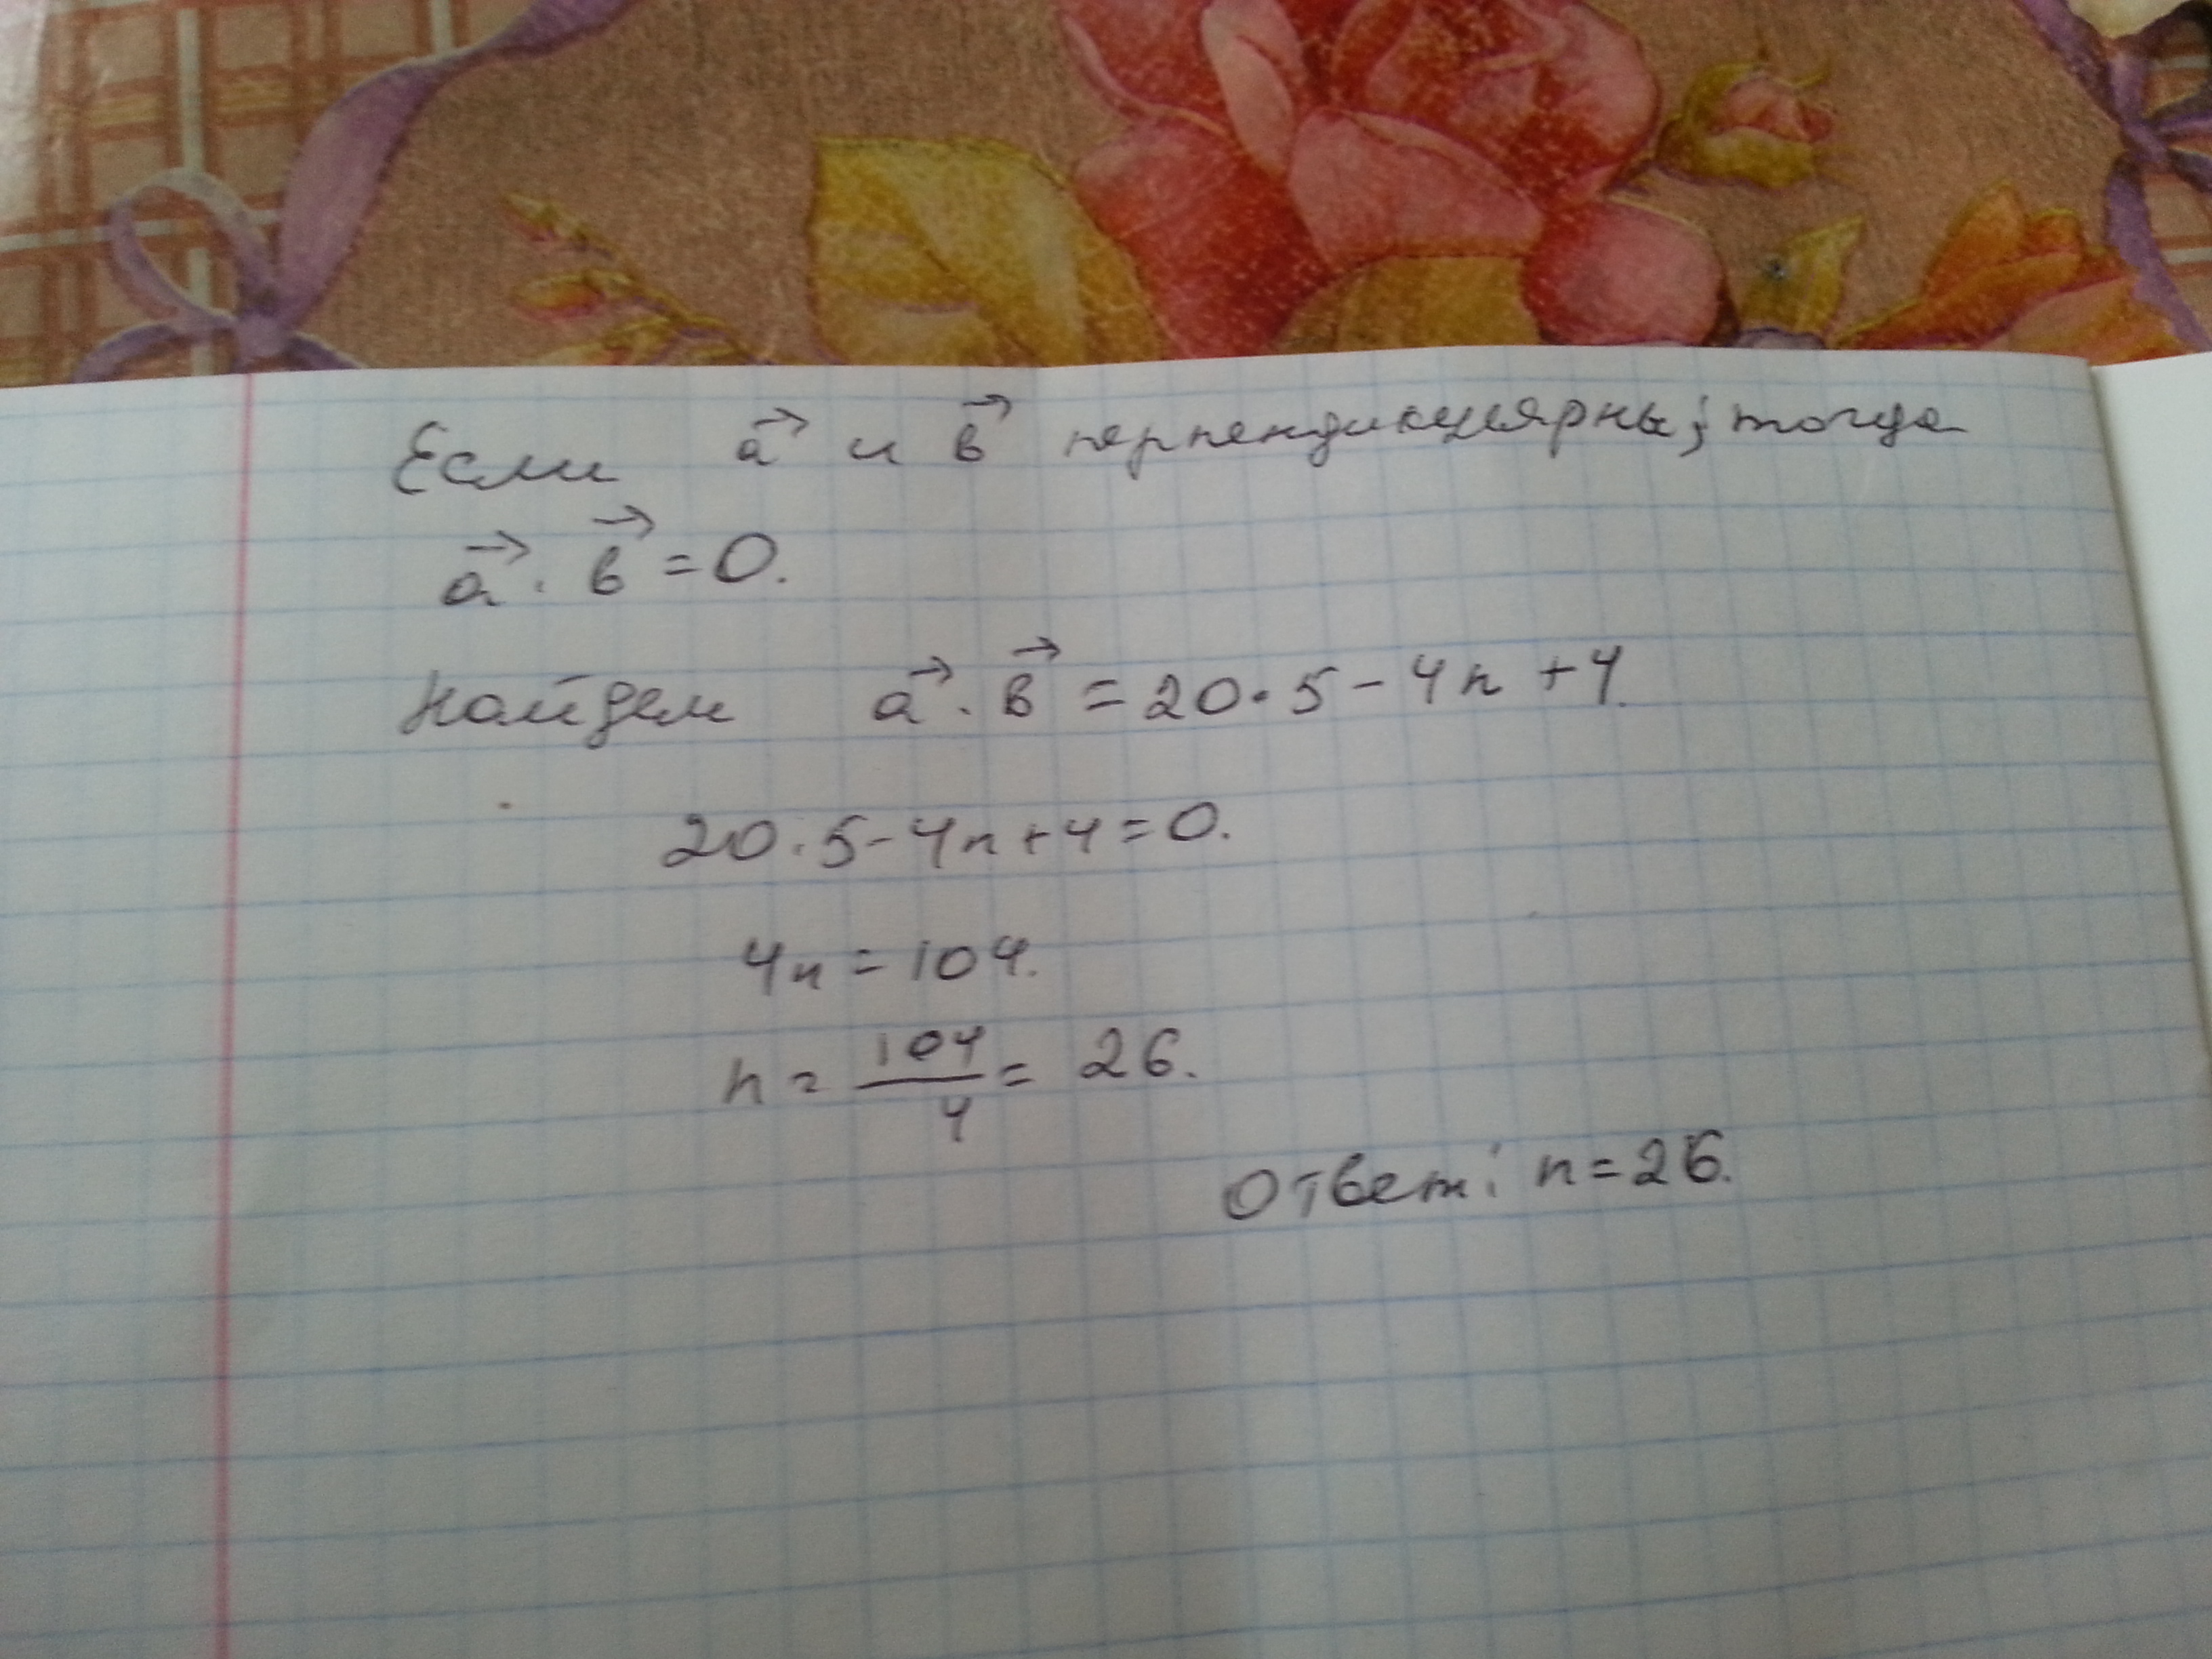 Если a⃗ и b⃗ перпендикулярны; тогда
a⃗ · b⃗ = 0.
Найдем a⃗ · b⃗ = 20·5 - 4n + 4.
20·5 - 4n + 4 = 0.
4n = 104.
n = 104/4 = 26.
Ответ: n = 26.